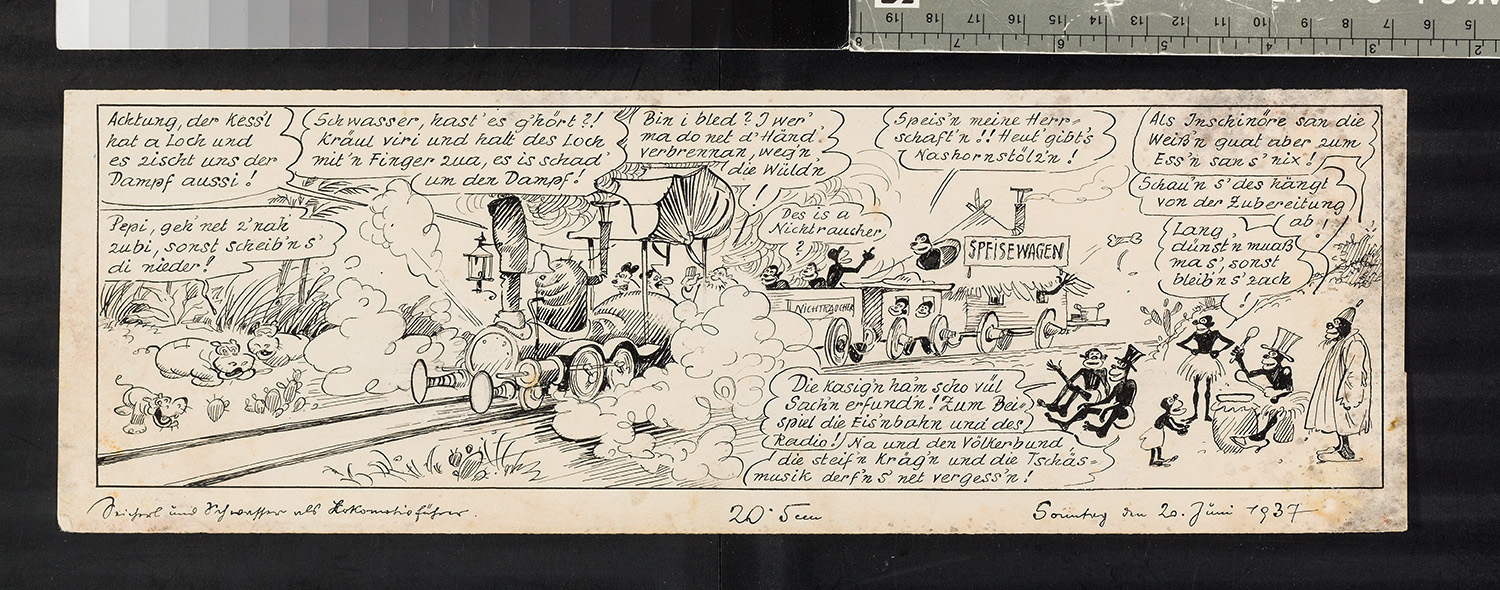 Achtung, der Kess'l
hat a Loch und
es zischt uns der
Dampf aussi!
Schwasser, hast' es g'hört?!
Kräul viri und halt des Loch
mit'n Finger zua, es is schad'
um den Dampf!
Bin i bled? I wer'
ma do net d' Händ'
verbrennan, weg'n
die Wüld'n
!
Speis'n meine Herr-
schaft'n!! Heut' gibt's
Nashornstölz'n!
Als Inschinöre san die
Weiß'n guat aber zum
Ess'n san s' nix!
Schau'n S' des hängt
von der Zubereitung
ab!
Pepi, geh' net z'nah'
zubi, sonst scheib'n s'
di nieder!
Des is a
Nichtraucher
?
Lang
dünst'n muaß
ma s', sonst
bleib'n s' zach
!
SPEISEWAGEN
NICHTRAUCHER
Die Kasig'n ham scho vül
Sach'n erfund'n! Zum Bei-
spiel die Eis'nbahn und des
Radio! Na und den Völkerbund
die steif'n Kräg'n und die Tschäs-
musik derf'n S' net vergess'n!
Seicherl und Schwasser als Lokomotivführer.
20·5 cm
Sonntag den 20. Juni 1937
19 18 17 16 15 14 13 12 11 10 9 8 7 6 5
8 7 6 5 4 3 2